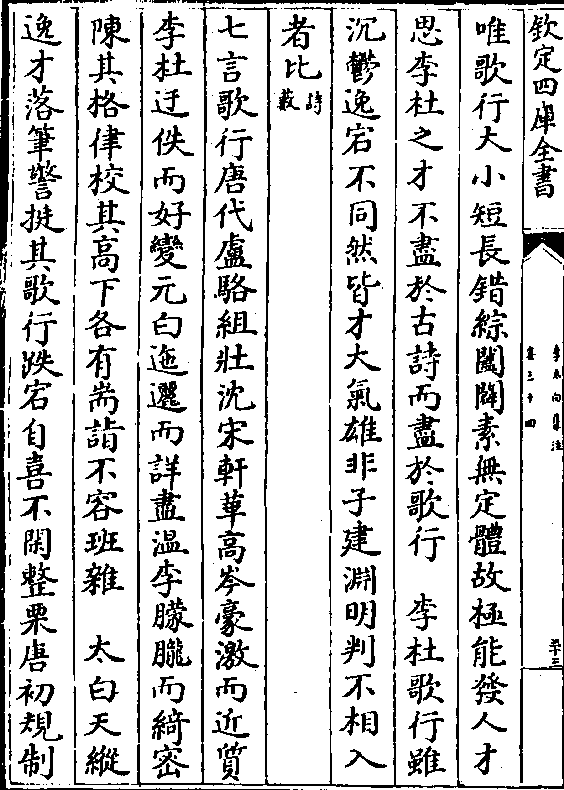 欽定四庫全書
李太白集注
卷三十四
唯歌行大小短長錯綜闔闢素無定體故極能發人才
思李杜之才不盡於古詩而盡於歌行　李杜歌行雖
沉鬱逸宕不同然皆才大氣雄非子建淵明判不相入
者比詩藪
七言歌行唐代盧駱組壯沈宋軒華高岑豪激而近質
李杜迂佚而好變元白迤邐而詳盡温李朦朧而綺密
陳其格律校其高下各有耑詣不容班雜　太白天縱
逸才落筆警挺其歌行跌宕自喜不閑整栗唐初規制